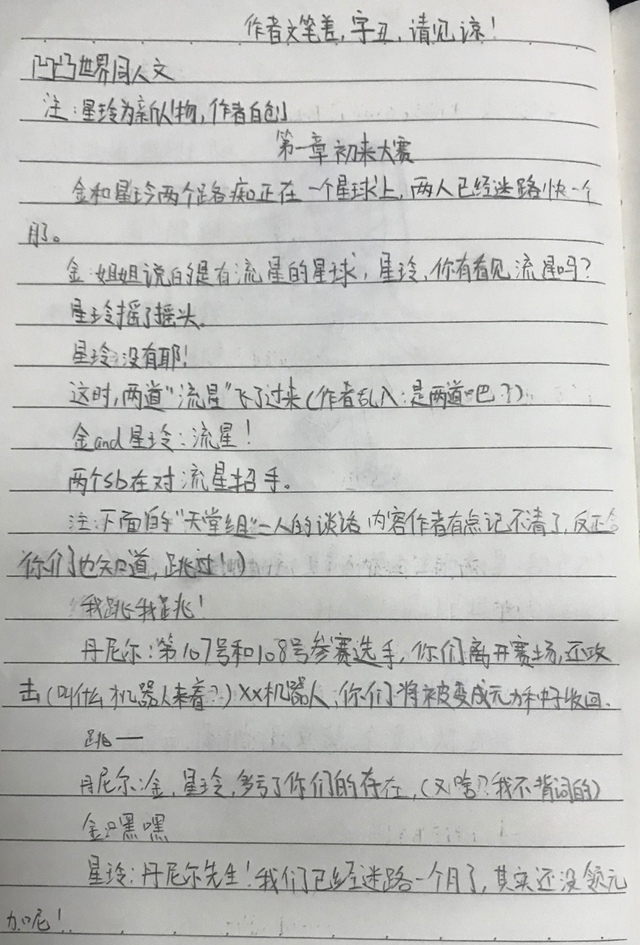 作者文笔差,字丑,请见谅!
凹凸世界同人文
注:星玲为新人物,作者自创
第一章初来大赛
金和星玲两个路痴正在一个星球上,两人已经迷路快一个
月。
金:姐姐说的是有流星的星球,星玲,你有看见流星吗?
星玲摇了摇头。
星玲:没有耶!
这时,两道“流星”飞了过来(作者乱入:是两道吧?)
金and星玲:流星!
两个sb在对流星招手。
注:下面的“天堂组”一人的谈话内容作者有点记不清了,反正
你们也知道,跳过!)
我跳我跳!
丹尼尔:第107号和108号参赛选手,你们离开赛场,还攻
击(叫什么机器人来着?)XX机器人,你们将被变成元力种子收回。
跳一
丹尼尔:金,星玲,多亏了你们的存在,(又啥?我不背词的)
金:嘿嘿
星玲:丹尼尔先生!我们已经迷路一个月了,其实还没领元
力呢!